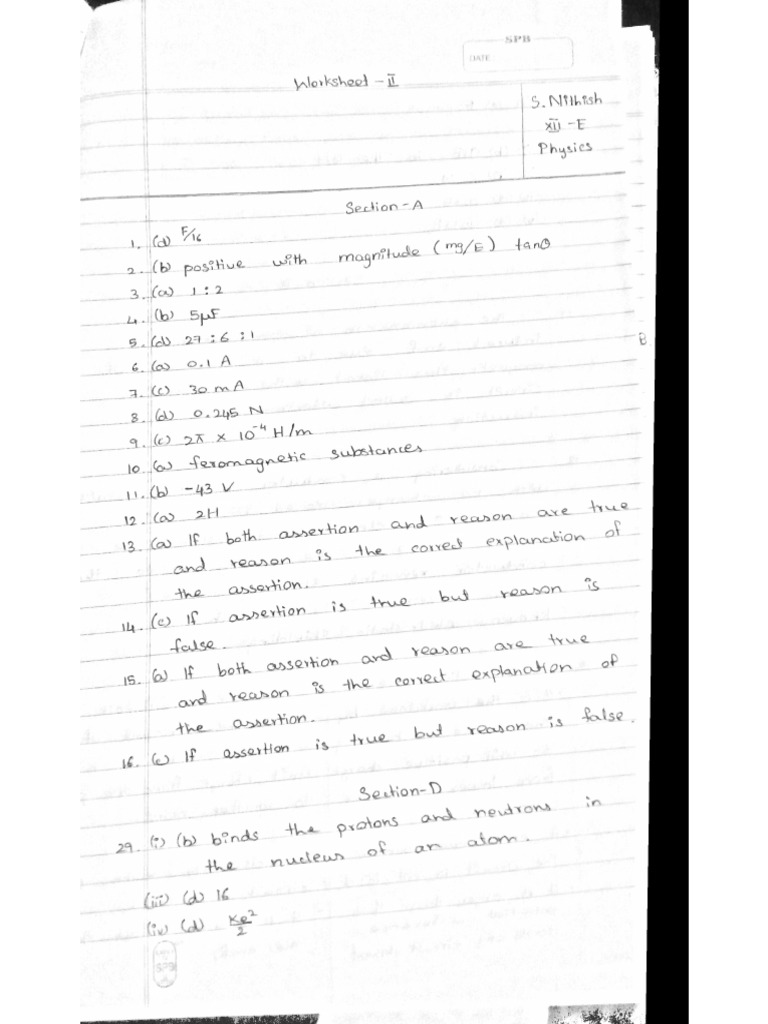 SPB
DATE:
Worksheet - II
S. Nithish
XII - E
Physics
Section - A
1. (d) F/16
2. (b) positive with magnitude (mg/E) tanθ
3. (a) 1 : 2
4. (b) 5μF
5. (d) 27 : 6 : 1
6. (a) 0.1 A
7. (c) 30 mA
8. (d) 0.245 N
9. (c) 2π × 10⁻⁴ H/m
10. (a) feromagnetic substances
11. (b) -43 V
12. (a) 2H
13. (a) If both assertion and reason are true
and reason is the correct explanation of
the assertion.
14. (c) If assertion is true but reason is
false.
15. (a) If both assertion and reason are true
and reason is the correct explanation of
the assertion.
16. (c) If assertion is true but reason is false.
Section-D
29. (i) (b) binds the protons and neutrons in
the nucleus of an atom.
(iii) (d) 16
(iv) (d) Ke²/2
SPB